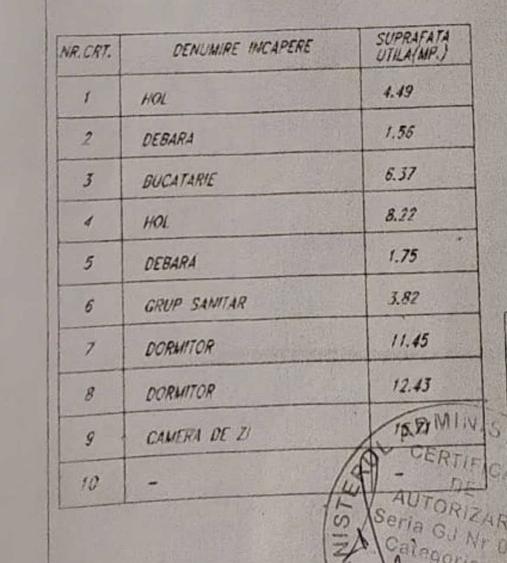 NR. CRT. DENUMIRE INCAPERE SUPRAFATA UTILA(MP.)
1 HOL 4.49
2 DEBARA 1.56
3 BUCATARIE 6.37
4 HOL 8.22
5 DEBARA 1.75
6 GRUP SANITAR 3.82
7 DORMITOR 11.45
8 DORMITOR 12.43
9 CAMERA DE ZI
10 - -
CERTIFICA
DE
AUTORIZAR
Seria GJ Nr 0
Categoria